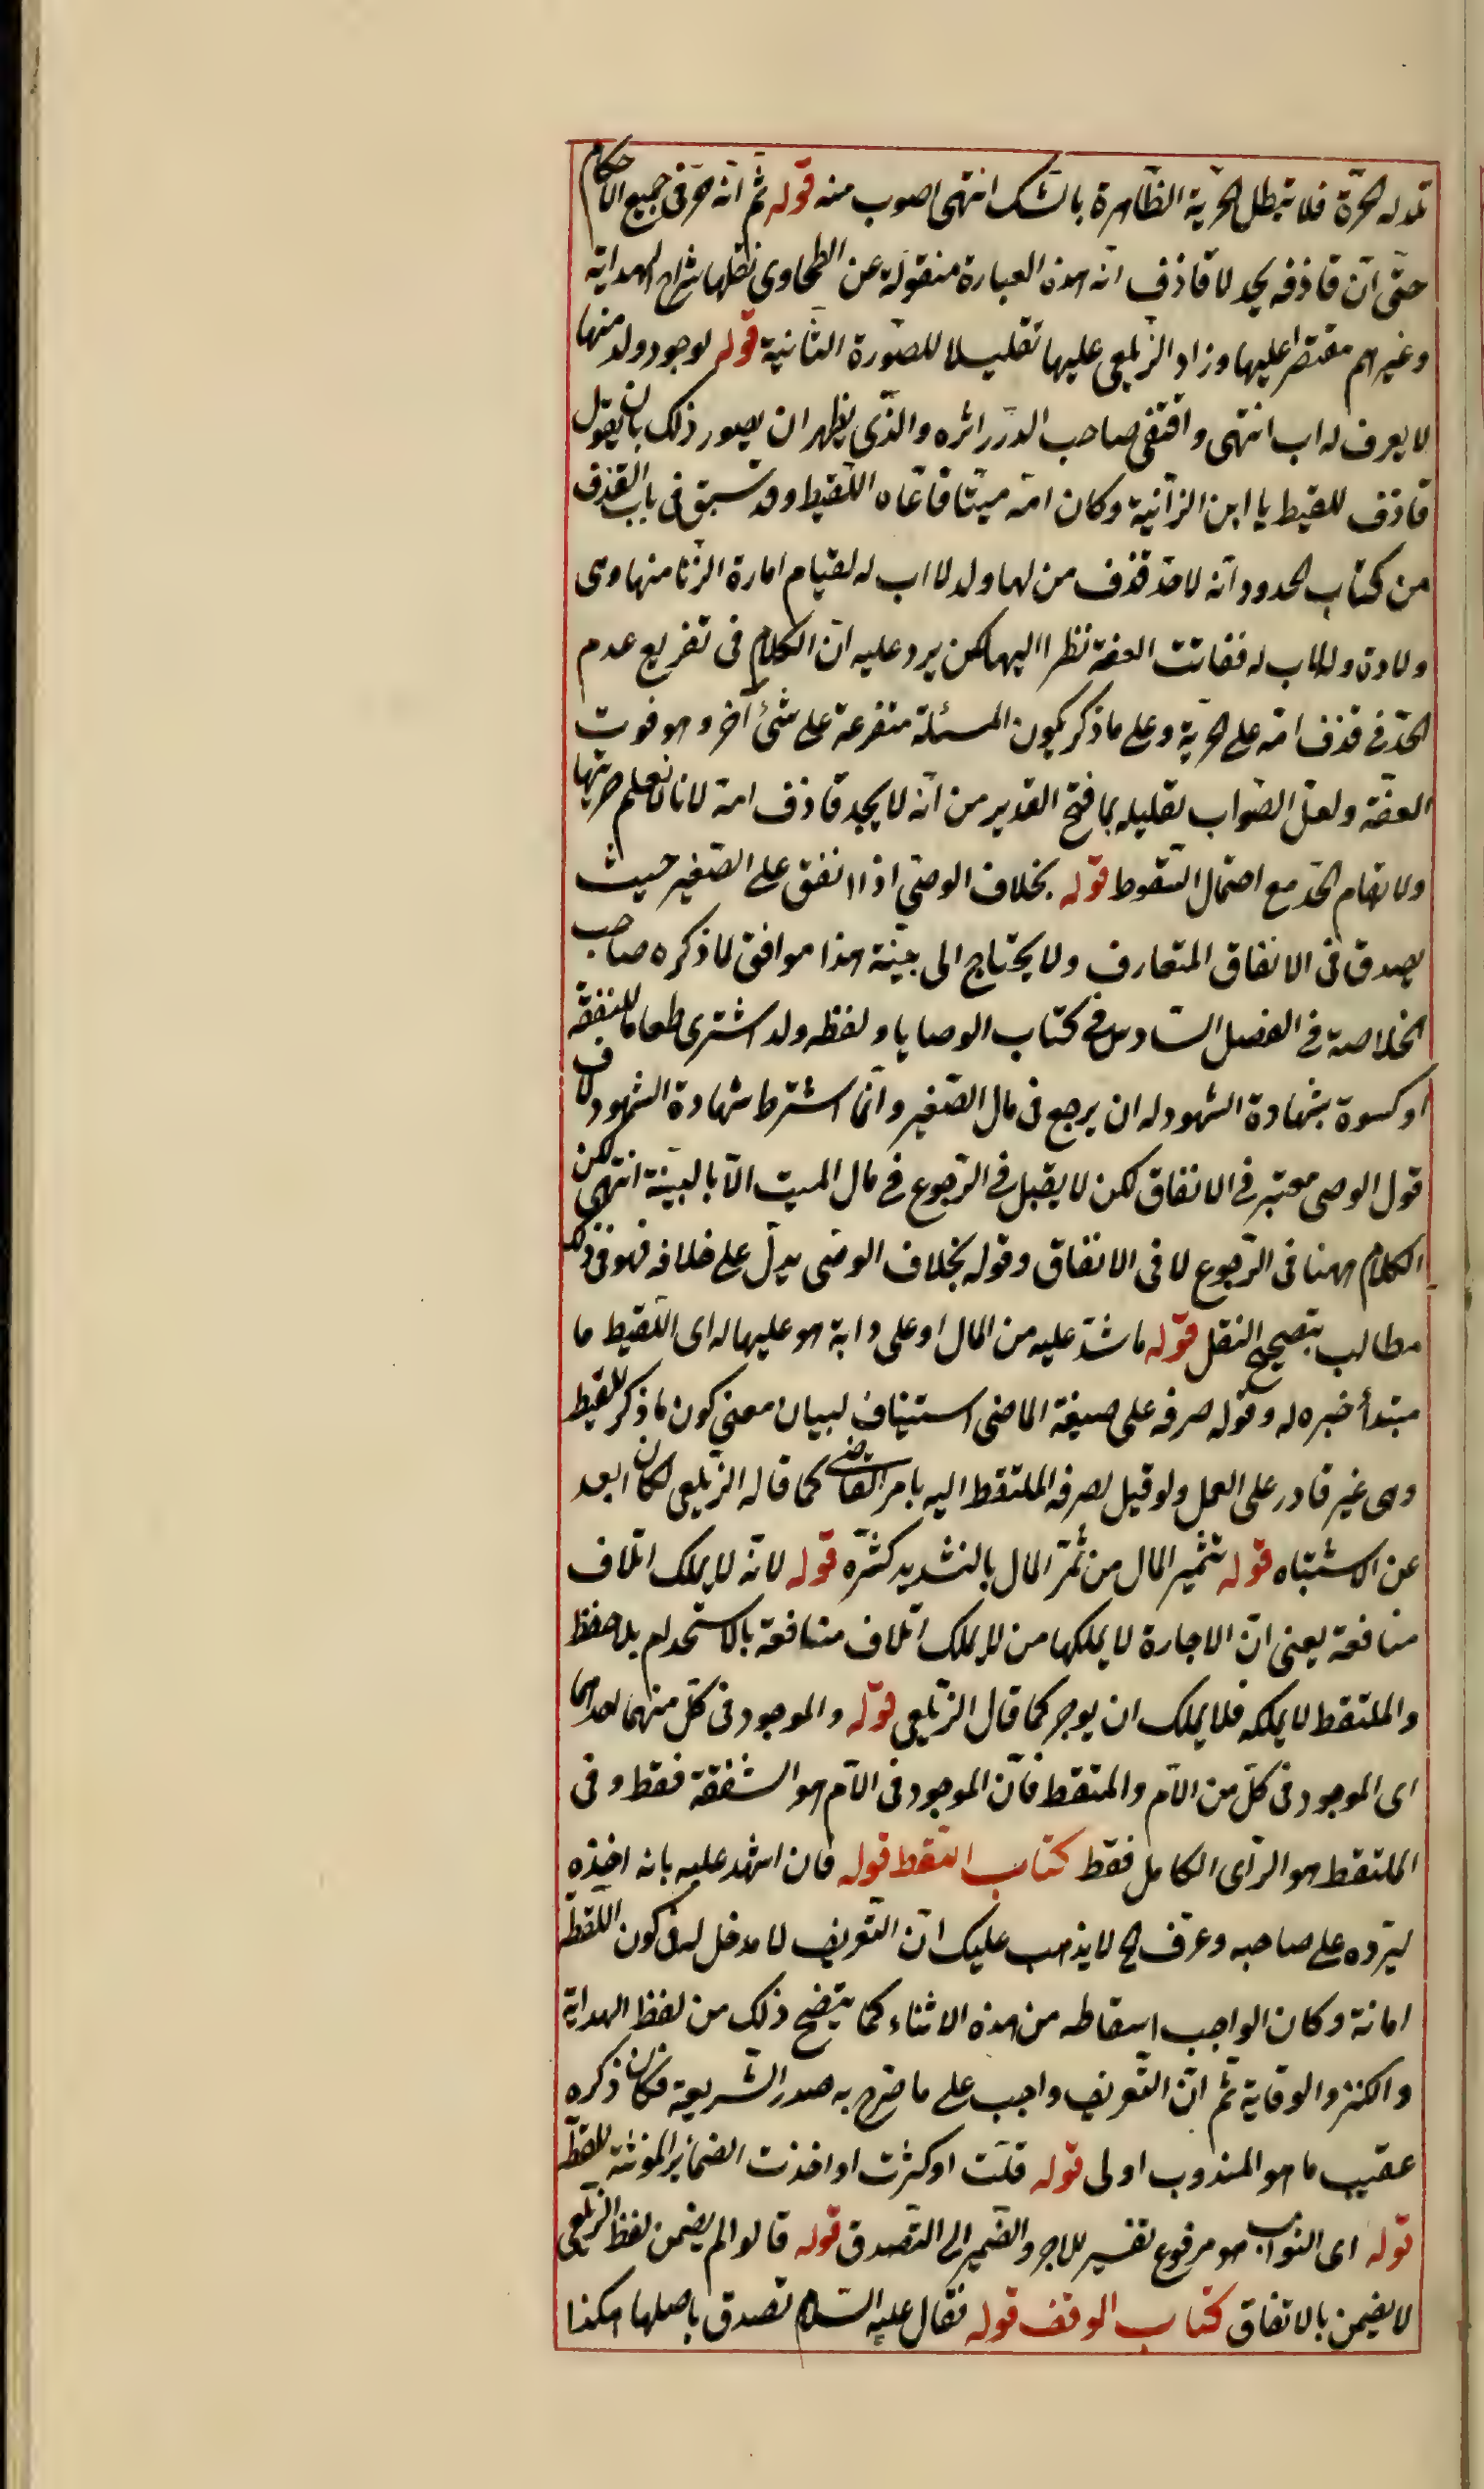 تلد له الحرّة فلا تبطل الحرّية الظّاهرة بالشّك انتهى اصوب منه قوله ثمّ انّه حرّ فى جميع الاحكام
حتّى انّ قاذفه يحد لا قاذف امّه هذه العبارة منقولة عن الطحاوى نقلها شراح الهداية
وغيرهم مقتصرا عليها وزاد الزّيلعى عليها تعليلا للصّورة الثّانية قوله لوجود ولد منها
لا يعرف له اب انتهى واقتفى صاحب الدّرر اثره والذّى يظهر ان يصور ذلك بان يقول
قاذف للقيط يا ابن الزّانية وكان امّه ميّتا فادّعاه اللّقيط وقد سبق فى باب القذف
من كتاب الحدود انّه لا حدّ قذف من لها ولد لا اب له لقيام امارة الزّنا منها وهى
ولادة ولد لا اب له ففاتت العفة نظرا اليها لكن يرد عليه انّ الكلام فى تفريع عدم
الحدّ فى قذف امّه على الحرّية وعلى ما ذكر يكون المسئلة متفرعة على شىء آخر وهو فوت
العفّة ولعلّ الصّواب تعليله بما فى فتح القدير من انّه لا يحد قاذف امه لانا لا نعلم حريتها
ولا يقام الحدّ مع احتمال السّقوط قوله بخلاف الوصىّ اذا انفق على الصّغير حيث
يصدق فى الانفاق المتعارف ولا يحتاج الى بيّنة هذا موافق لما ذكره صاحب
الخلاصة فى الفصل السّادس فى كتاب الوصايا ولفظه ولد اشترى طعاما للنفقة
او كسوة بشهادة الشهود له ان يرجع فى مال الصّغير وانّما اشترط شهادة الشهود لان
قول الوصى معتبر فى الانفاق لكن لا يقبل فى الرّجوع فى مال الميت الّا بالبيّنة انتهى لكن
الكلام ههنا فى الرّجوع لا فى الانفاق وقوله بخلاف الوصّى يدلّ على خلافه فهو فى ذلك
مطالب بتصحيح النقل قوله ما شدّ عليه من المال او على دابة هو عليها له اى اللّقيط ما
مبتدأ خبره له وقوله صرفه على صيغة الماضى استيناف لبيان معنى كون ما ذكر للقيط
وهى غير قادر على العمل ولو قيل لصرفه الملتقط اليه بامر القاضى كما قاله الزّيلعى لكان ابعد
عن الاشتباه قوله تثمير المال من ثمّر المال بالتشديد كثّره قوله لانّه لا يملك اتلاف
منافعة يعنى انّ الاجارة لا يملكها من لا يملك اتلاف منافعة بالاستخدام بلا حفظ
والملتقط لا يملكه فلا يملك ان يوجر كما قال الزّيلعى قوله والموجود فى كلّ منهما احدهما
اى الموجود فى كلّ من الامّ والملتقط فانّ الموجود فى الامّ هو الشفقة فقط وفى
الملتقط هو الرّأى الكامل فقط كتاب اللقط قوله فان اشهد عليه بانه اخذه
ليردّه على صاحبه وعرّف الخ لا يذهب عليك انّ التّعريف لا مدخل له فى كون اللّقطة
امانة وكان الواجب اسقاطه من هذه الاثناء كما يتضح ذلك من لفظ الهداية
والكنز والوقاية ثمّ انّ التّعريف واجب على ما صّرح به صدر الشّريعة فكان ذكره
عقيب ما هو المندوب اولى قوله قلّت او كثرت او اخذت الضمائر المونثة للّقطة
قوله اى الثواب هو مرفوع تفسير للاجر والضّمير الى التّصدق قوله قالوا لم يضمن لفظ الزّيلعى
لا يضمن بالاتفاق كتاب الوقف قوله فقال عليه السّلام تصدق باصلها هكذا